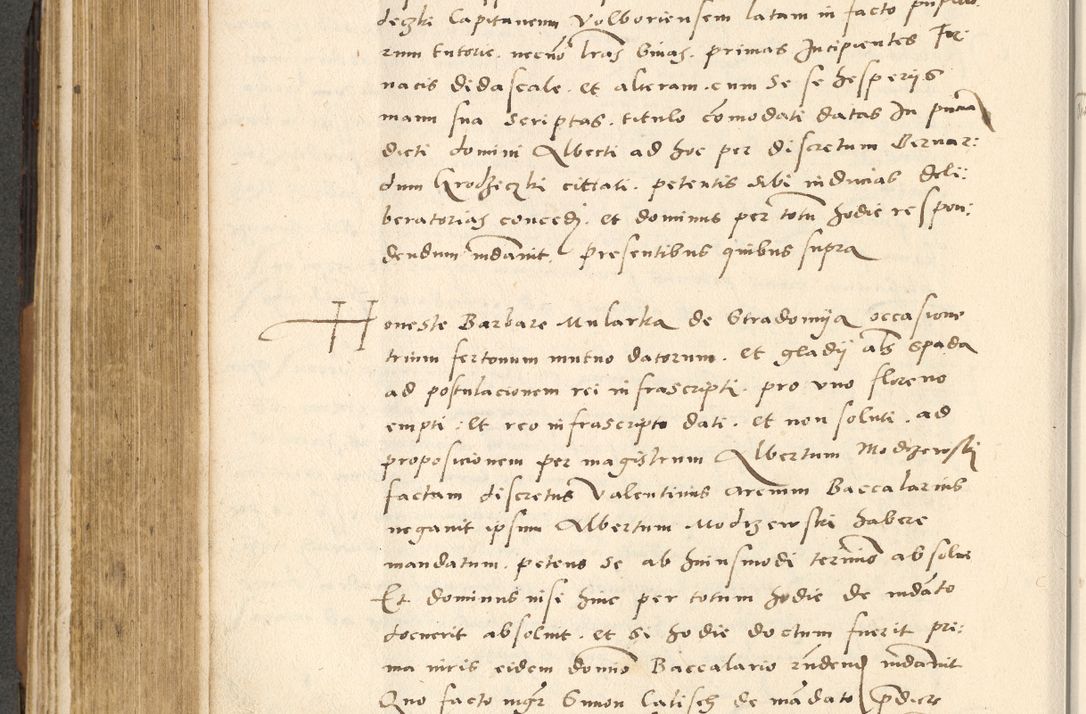 deczki Capitaneum Volboriensem latam in facto pupillo
rum tutorie. necnō lras binas. primas Incipientes For
nacis didascale. et alteram. cum se se hesperijs
manu sua scriptas. titulo cōmodati datas In pntia
dicti domini Alberti ad hoc per discretum Bernar:
dum Grodzeczki cittati. petentis sibi inducias deli:
beratorias concedj. et dominus per totū hodie respon:
dendum indauit. presentibus quibus supra
Honeste Barbare Mularka de Stradomija occasione
trium fertonum mutuo datorum. et gladij als spada
ad postulacionem rei infrascripti. pro vno floreno
empti: et reo infrascripto dati. et non soluti. ad
proposicionem per magistrum Albertum Modzerwski
factam discretus Valentinus Arcium Baccalarius
negauit ipsum Albertum Modrzewski habere
mandatum. petens se ab huiusmodi termīo absolui
Et dominus nisi hinc per totum hodie de mdāto
docuerit absoluit. et si hodie doctum fuerit pri:
ma iuris eidem domīo Baccalario rn̄dendū mdauit
Quo facto mgr Simon Calisch de mādato predicte